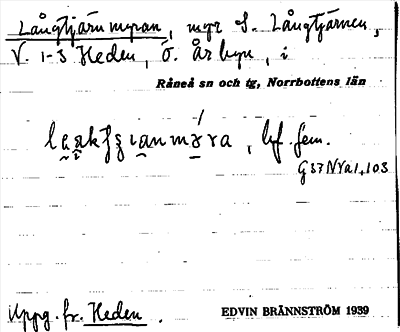 Långtjärnmyran, myr S. Långtjärnen,
V. 1-3 Heden, Ö. Årbyn, i
Råneå sn och tg, Norrbottens län
bf. fem.
G37NVa1,103
Uppg. fr. Heden.
EDVIN BRÄNNSTRÖM 1939